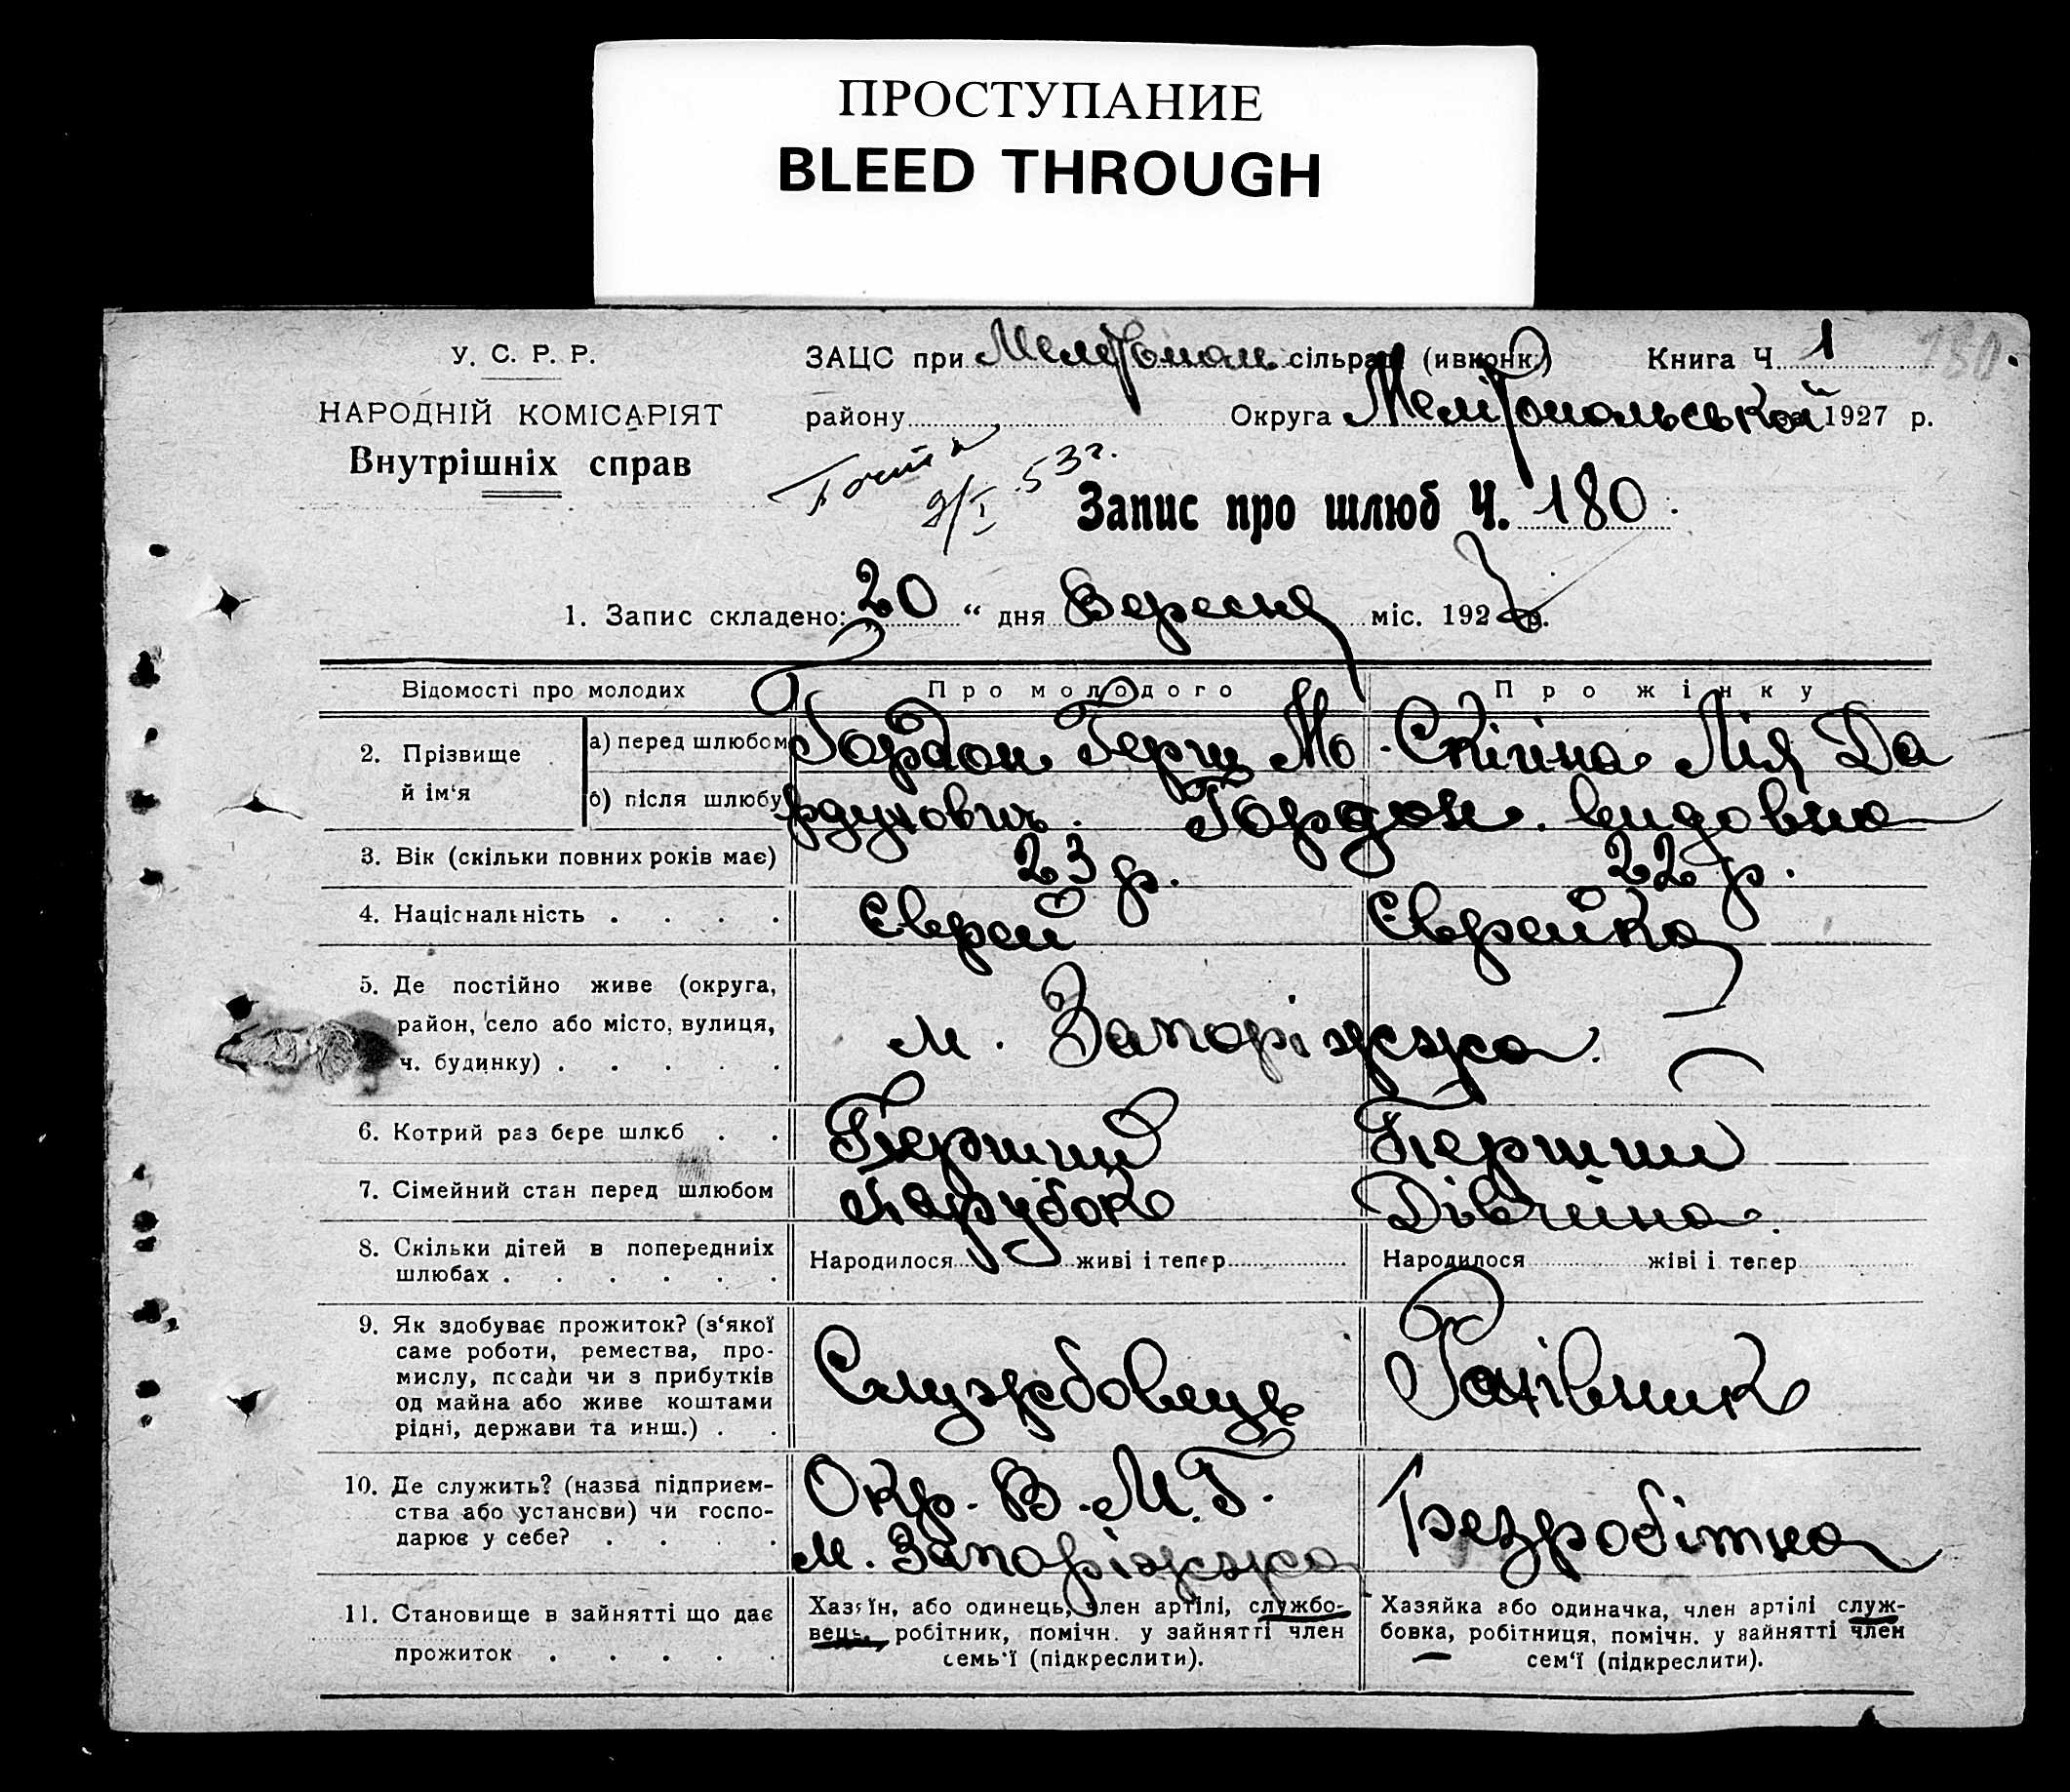 ПРОСТУПАНИЕ
BLEED THROUGH
У. С. Р. Р.
НАРОДНІЙ КОМІСАРІЯТ
Внутрішніх справ
ЗАЦС при Мелітополь сільраді (ивконк.) Книга Ч. 1 180.
району Округа Мелітопольській 1927 р.
9/I 53 г.
Запис про шлюб Ч. 180
1. Запис складено: 20 “ дня Вересня міс. 1927 р.
Відомості про молодих Про молодого Про жінку
2. Прізвище й ім‘я
а) перед шлюбом Гордон Герш Мо Спігіна Лія Да
б) після шлюбу рдухович. Гордон. видовна
3. Вік (скільки повних років має) 23 р. 22 р.
4. Національність . . . . Єврей Єврейка
5. Де постійно живе (округа,
район, село або місто, вулиця,
ч. будинку) . . . . .
м. Запоріжжа.
6. Котрий раз бере шлюб . . Перший Перший
7. Сімейний стан перед шлюбом Парубок Дівчина.
8. Скільки дітей в попередниіх
шлюбах . . . . . .
Народилося живі і тепер Народилося жіві і тепер
9. Як здобуває прожиток? (з‘якої
саме роботи, ремества, про-
мислу, посади чи з прибутків
од майна або живе коштами
рідні, держави та инш.) . .
Службовець
10. Де служить? (назва підприєм-
ства або установи) чи госпо-
дарює у себе? . . . .
Окр. В. М. Г.
м. Запоріжжа
Безробітна
11. Становище в зайнятті що дає
прожиток . . . . .
Хазяїн, або одинець, член артілі, службо-
вець, робітник, помічн. у зайнятті член
семь‘ї (підкреслити).
Хазяйка або одиначка, член артілі служ-
бовка, робітниця, помічн. у зайнятті член
сем‘ї (підкреслити).